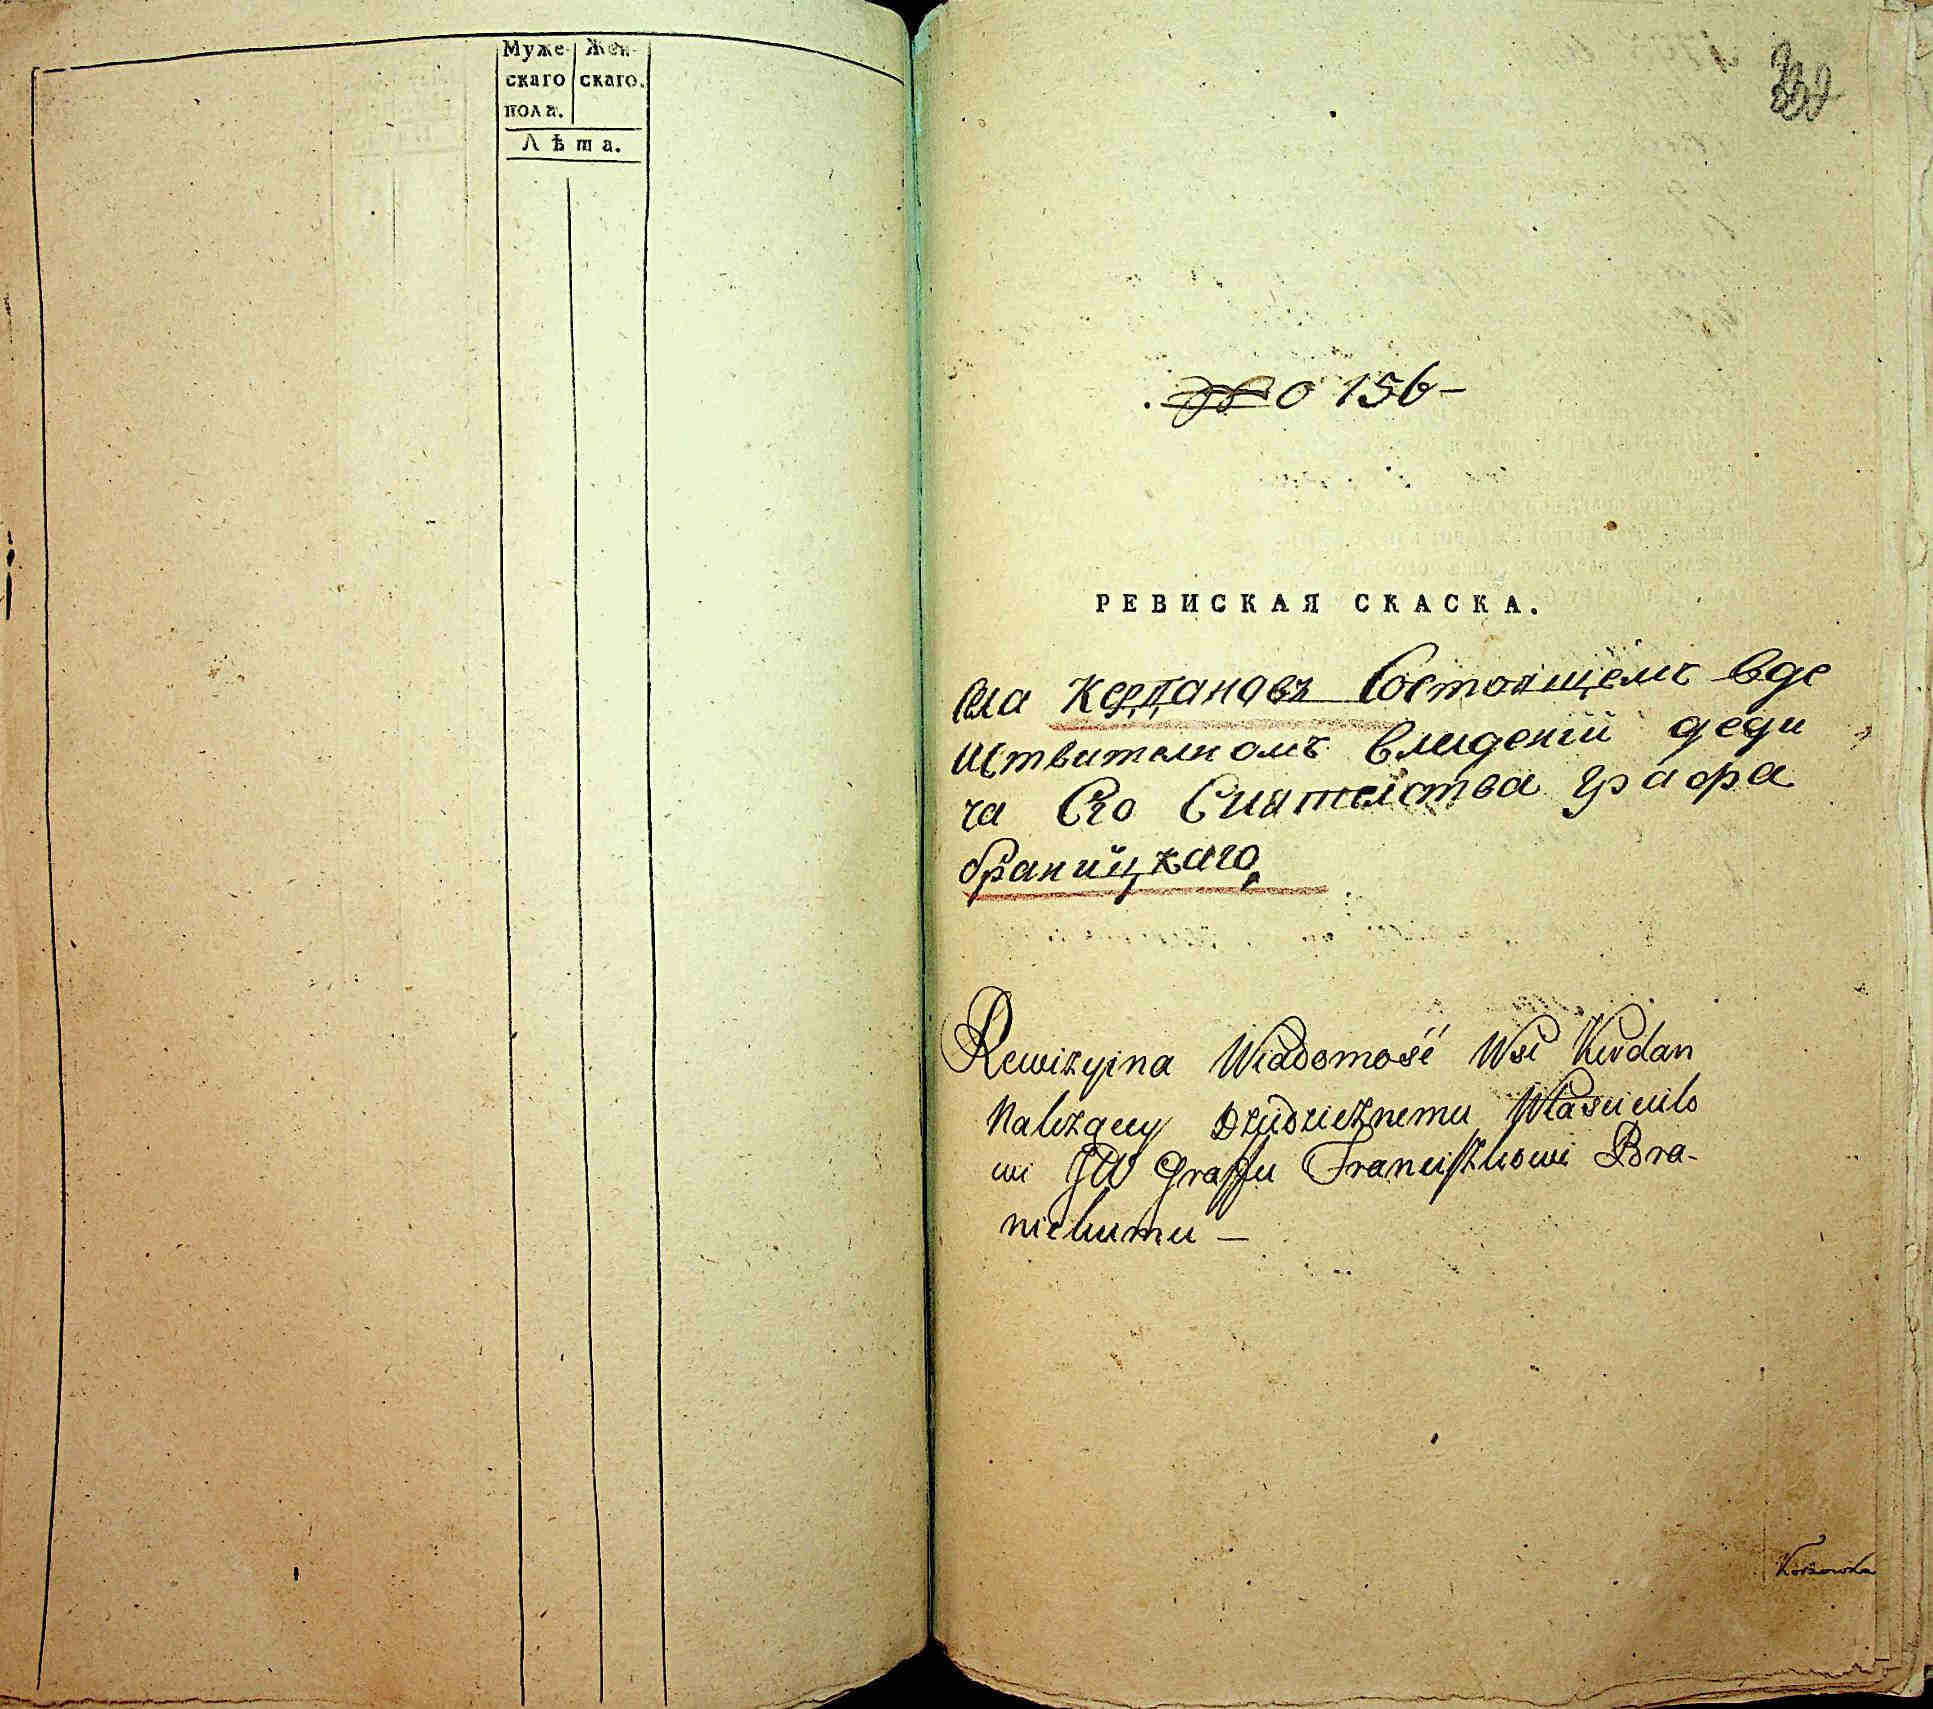 Муже- Жен-
скаго скаго.
пола.
Лѣта.
№ 156-
РЕВИСКАЯ СКАСКА.
Села Кердановъ Состоящемъ вде
иствителномъ владений деди
ча Его Сиятелства графа
браницкаго
Rewizyina Wiadomość Wsi Kirdan
Należący Dziedzicznemu Właścicilo
wi JW Graffu Franciszkowi Bra-
nickiemu –